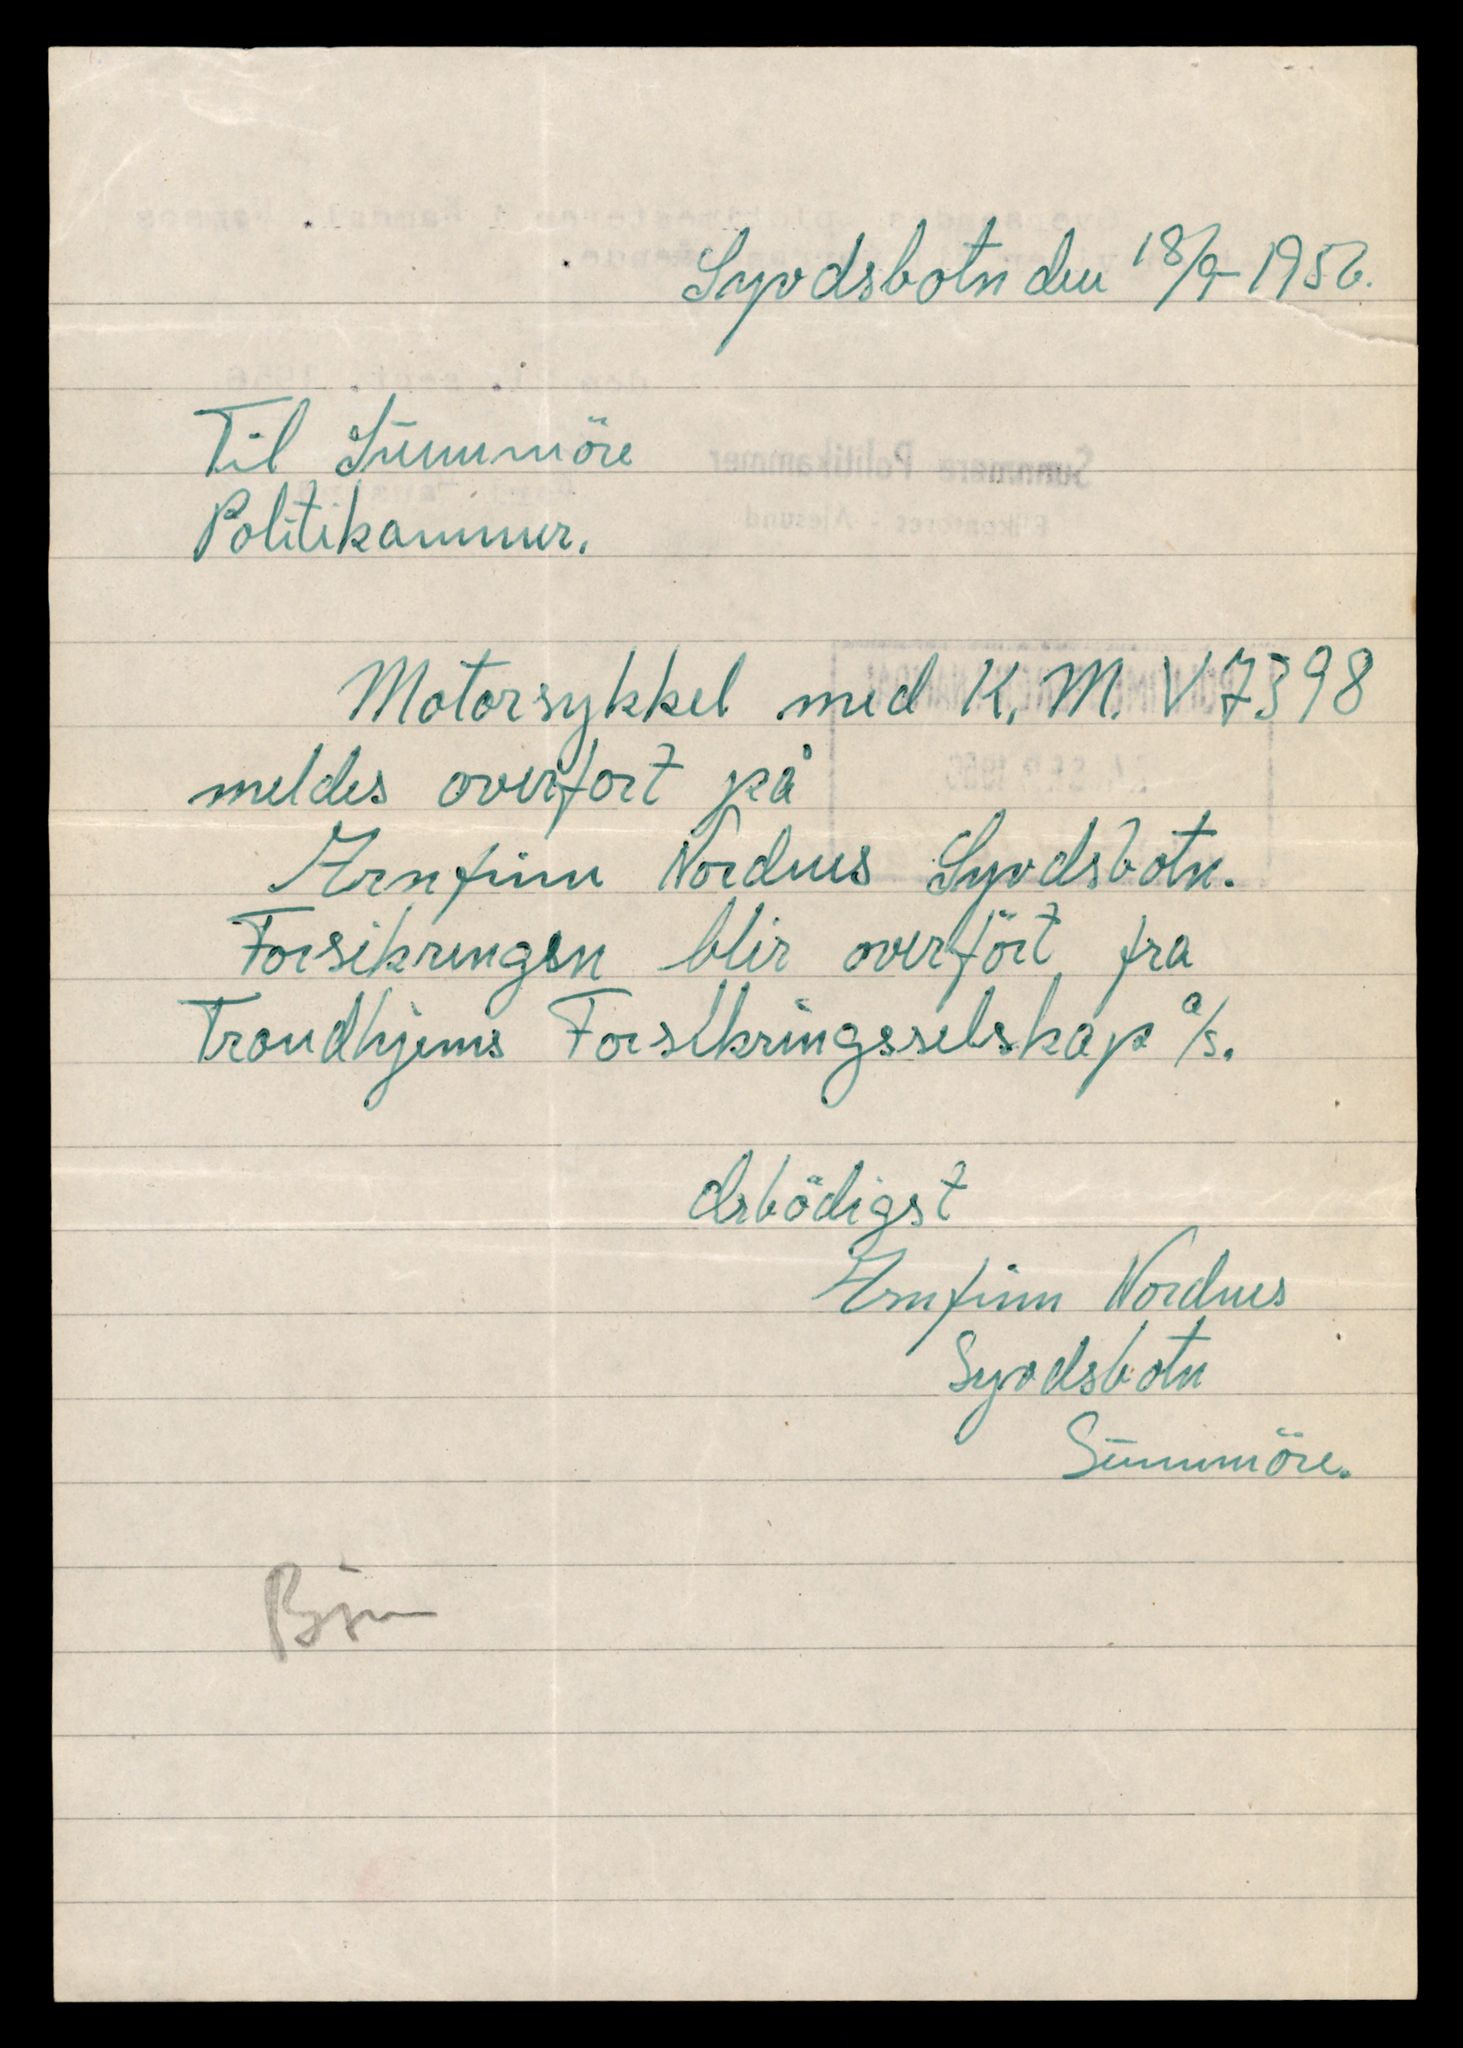 Syvdsbotn den 18/9-1956.
Til Sunnmöre
Politikammer.
Motorsykkel med K.M. V7398
meldes overfort på
Arnfinn Nordnes Syvdsbotn.
Forsikringen blir overfört fra
Trondhjems Forsikringsselskap a/s.
Ærbödigst
Arnfinn Nordnes
Syvdsbotn
Sunnmöre.